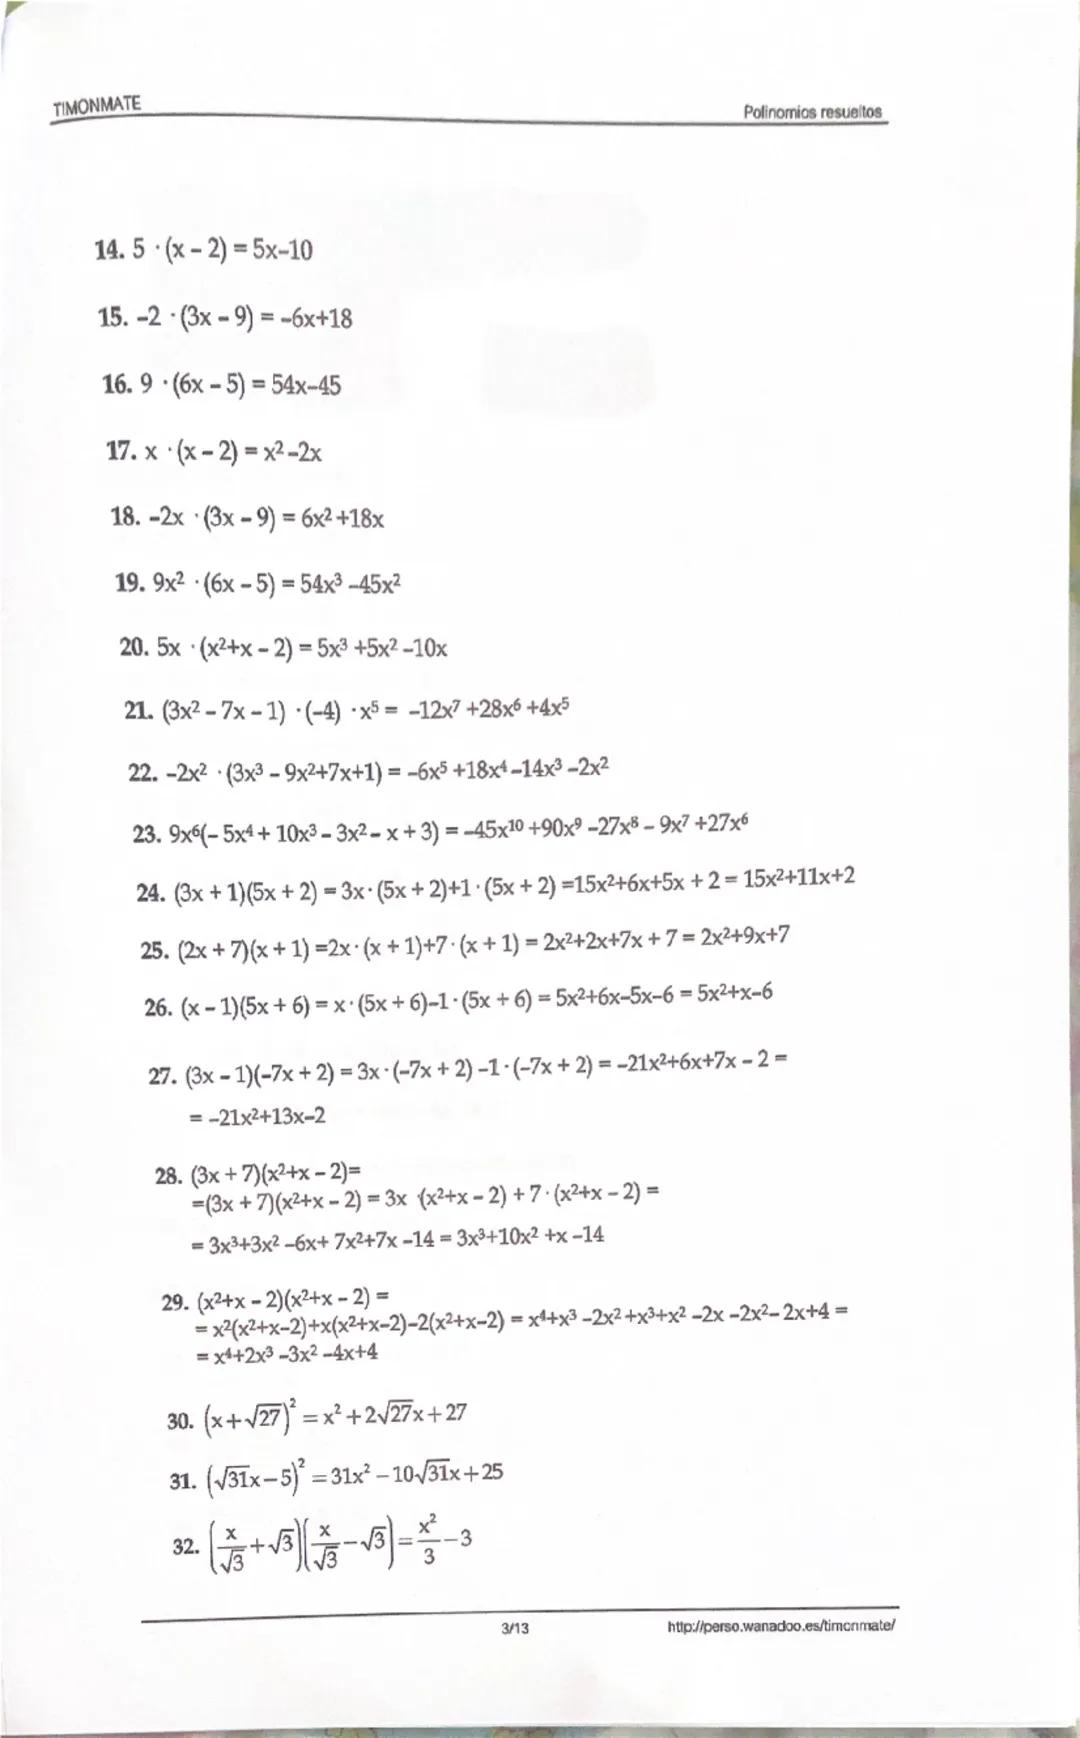 TIMONMATE
Polinomios resueltos
14. 5 · (x – 2) = 5x–10
15. –2 · (3x – 9) = –6x+18
16. 9 · (6x – 5) = 54x–45
17. x · (x – 2) = x² –2x
18. –2x · (3x – 9) = 6x² +18x
19. 9x² · (6x – 5) = 54x³ –45x²
20. 5x · (x²+x – 2) = 5x³ +5x² –10x
21. (3x² – 7x – 1) · (–4) · x⁵ = –12x⁷ +28x⁶ +4x⁵
22. –2x² · (3x³ – 9x²+7x+1) = –6x⁵ +18x⁴ –14x³ –2x²
23. 9x⁶(– 5x⁴ + 10x³ – 3x² – x + 3) = –45x¹⁰ +90x⁹ –27x⁸ – 9x⁷ +27x⁶
24. (3x + 1)(5x + 2) = 3x · (5x + 2)+1 · (5x + 2) =15x²+6x+5x + 2 = 15x²+11x+2
25. (2x + 7)(x + 1) =2x · (x + 1)+7 · (x + 1) = 2x²+2x+7x + 7 = 2x²+9x+7
26. (x – 1)(5x + 6) = x · (5x + 6)–1 · (5x + 6) = 5x²+6x–5x–6 = 5x²+x–6
27. (3x – 1)(–7x + 2) = 3x · (–7x + 2) –1 · (–7x + 2) = –21x²+6x+7x – 2 =
= –21x²+13x–2
28. (3x + 7)(x²+x – 2)=
=(3x + 7)(x²+x – 2) = 3x ·(x²+x – 2) + 7 · (x²+x – 2) =
= 3x³+3x² –6x+ 7x²+7x –14 = 3x³+10x² +x –14
29. (x²+x – 2)(x²+x – 2) =
= x²(x²+x–2)+x(x²+x–2)–2(x²+x–2) = x⁴+x³ –2x² +x³+x² –2x –2x²– 2x+4 =
= x⁴+2x³ –3x² –4x+4
30. (x+√27)² = x² +2√27x+27
31. (√31x–5)² =31x² –10√31x+25
32. (x/√3+√3)(x/√3–√3)=x²/3–3
3/13
http://perso.wanadoo.es/timonmate/